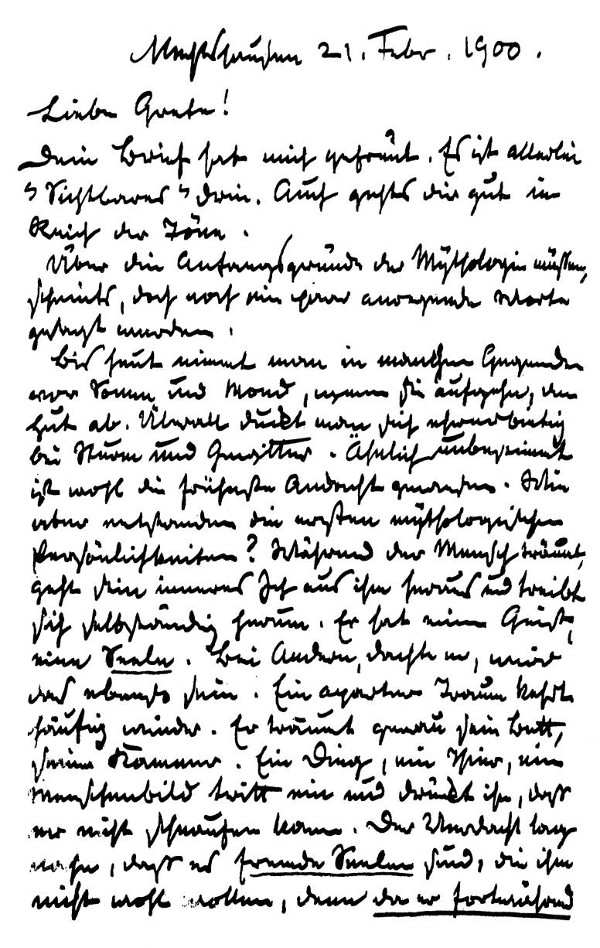 Mechtshausen 21. Febr. 1900.
Liebe Grete!
Dein Brief hat mich gefreut. Es ist allerlei
"Sichtbares" drin. Auch gehts dir gut im
Reich der Töne.
Über die Anfangsgründe der Mythologie müssen,
scheints, doch noch ein paar anregende Worte
gesagt werden.
Bis heut nimmt man in manchen Gegenden
vor Sonne und Mond, wenn sie aufgehn, den
Hut ab. Überall duckt man sich ehrerbietig
bei Sturm und Gewitter. Ähnlich unbestimmt
ist wohl die früheste Andacht gewesen. Wie
aber entstanden die ersten mythologischen
Persönlichkeiten? Während der Mensch träumt,
geht sein inneres Ich aus ihm heraus und treibt
sich selbständig herum. Er hat einen Geist,
eine Seele. Bei Andern, dachte er, wird
das ebenso sein. Ein aparter Traum kehrt
häufig wieder. Er träumt genau sein Bett,
seine Kammer. Ein Ding, ein Thier, ein
Menschenbild tritt ein und drückt ihn, daß
er nicht schnaufen kann. Der Verdacht lag
nahe, daß es fremde Seelen sind, die ihm
nicht wohl wollen, denn da er fortwährend